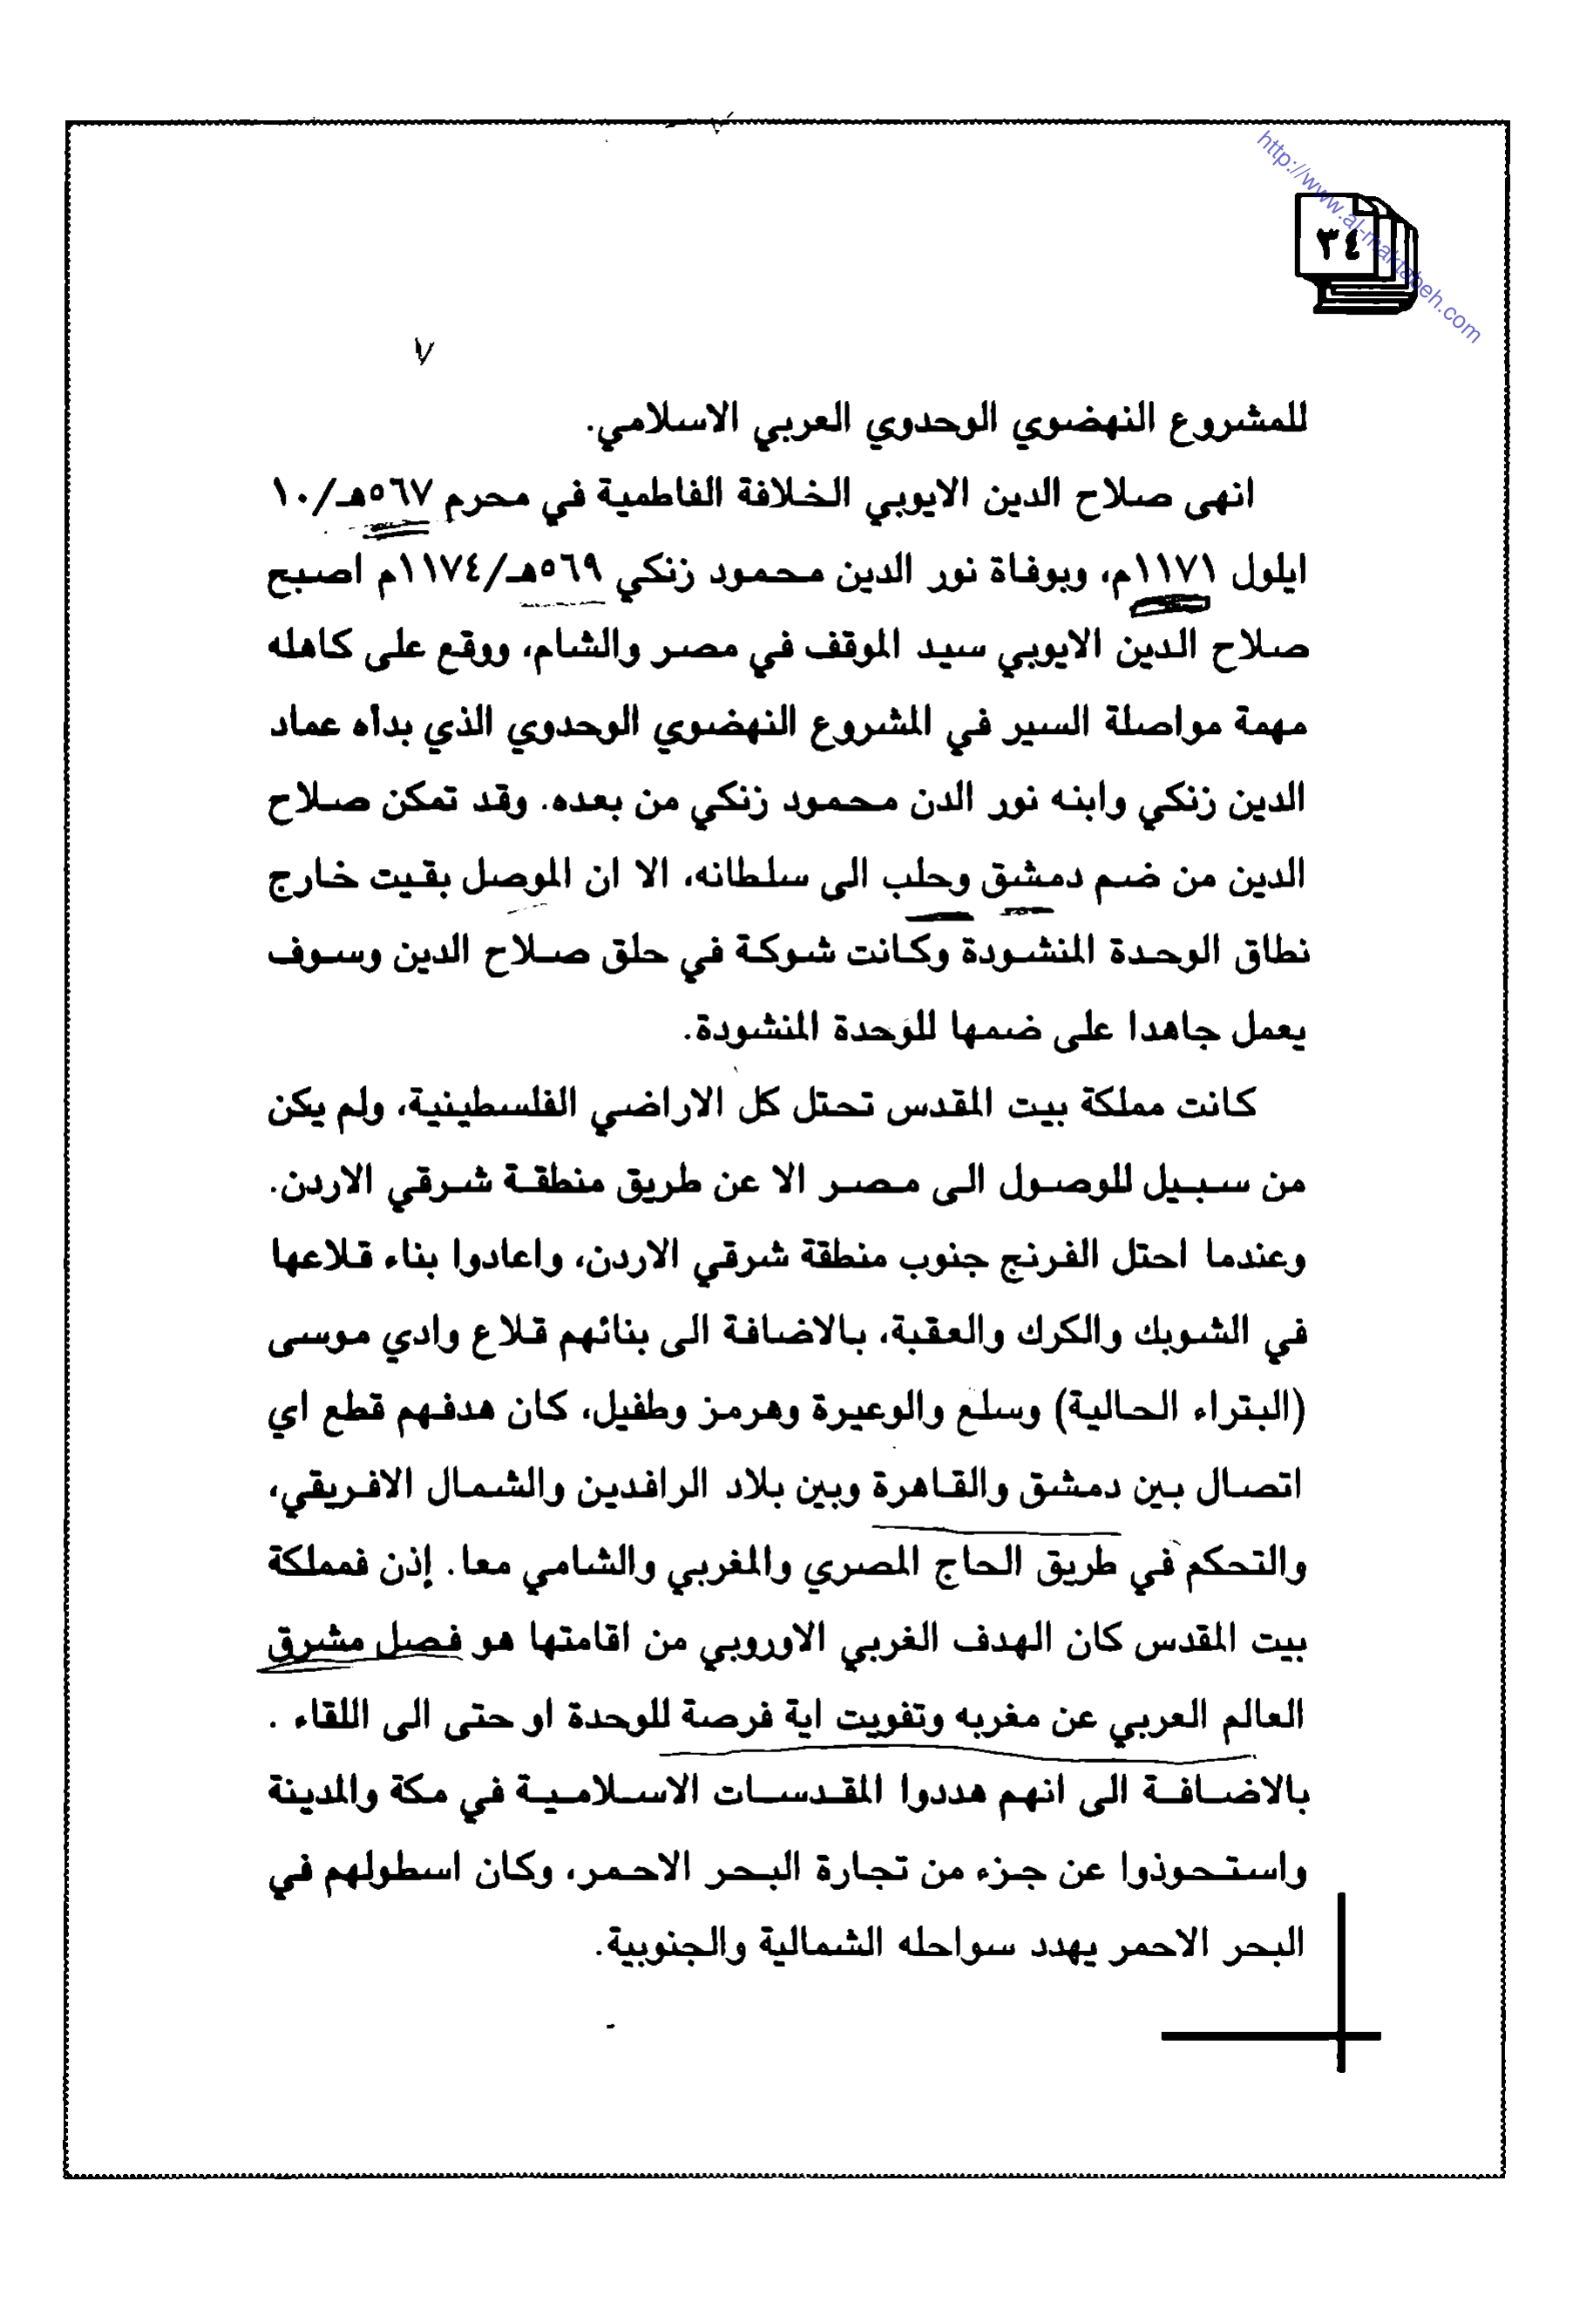 http://www.al-maktabeh.com
٣٤
للمشروع النهضوي الوحدوي العربي الاسلامي.
انهى صلاح الدين الايوبي الخلافة الفاطمية في محرم ٥٦٧هـ/١٠
ايلول ١١٧١م، وبوفاة نور الدين محمود زنكي ٥٦٩هـ/١١٧٤م اصبح
صلاح الدين الايوبي سيد الموقف في مصر والشام، ووقع على كاهله
مهمة مواصلة السير في المشروع النهضوي الوحدوي الذي بدأه عماد
الدين زنكي وابنه نور الدن محمود زنكي من بعده. وقد تمكن صلاح
الدين من ضم دمشق وحلب الى سلطانه، الا ان الموصل بقيت خارج
نطاق الوحدة المنشودة وكانت شوكة في حلق صلاح الدين وسوف
يعمل جاهدا على ضمها للوحدة المنشودة.
كانت مملكة بيت المقدس تحتل كل الاراضي الفلسطينية، ولم يكن
من سبيل للوصول الى مصر الا عن طريق منطقة شرقي الاردن.
وعندما احتل الفرنج جنوب منطقة شرقي الاردن، واعادوا بناء قلاعها
في الشوبك والكرك والعقبة، بالاضافة الى بنائهم قلاع وادي موسى
(البتراء الحالية) وسلع والوعيرة وهرمز وطفيل، كان هدفهم قطع اي
اتصال بين دمشق والقاهرة وبين بلاد الرافدين والشمال الافريقي،
والتحكم في طريق الحاج المصري والمغربي والشامي معا. إذن فمملكة
بيت المقدس كان الهدف الغربي الاوروبي من اقامتها هو فصل مشرق
العالم العربي عن مغربه وتفويت اية فرصة للوحدة او حتى الى اللقاء .
بالاضافة الى انهم هددوا المقدسات الاسلامية في مكة والمدينة
واستحوذوا عن جزء من تجارة البحر الاحمر، وكان اسطولهم في
البحر الاحمر يهدد سواحله الشمالية والجنوبية.